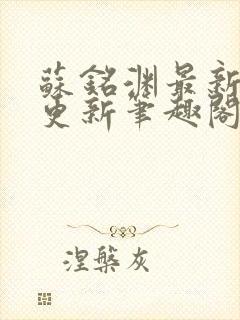 蘇銘淵最新
更新筆趣閣
涅槃灰